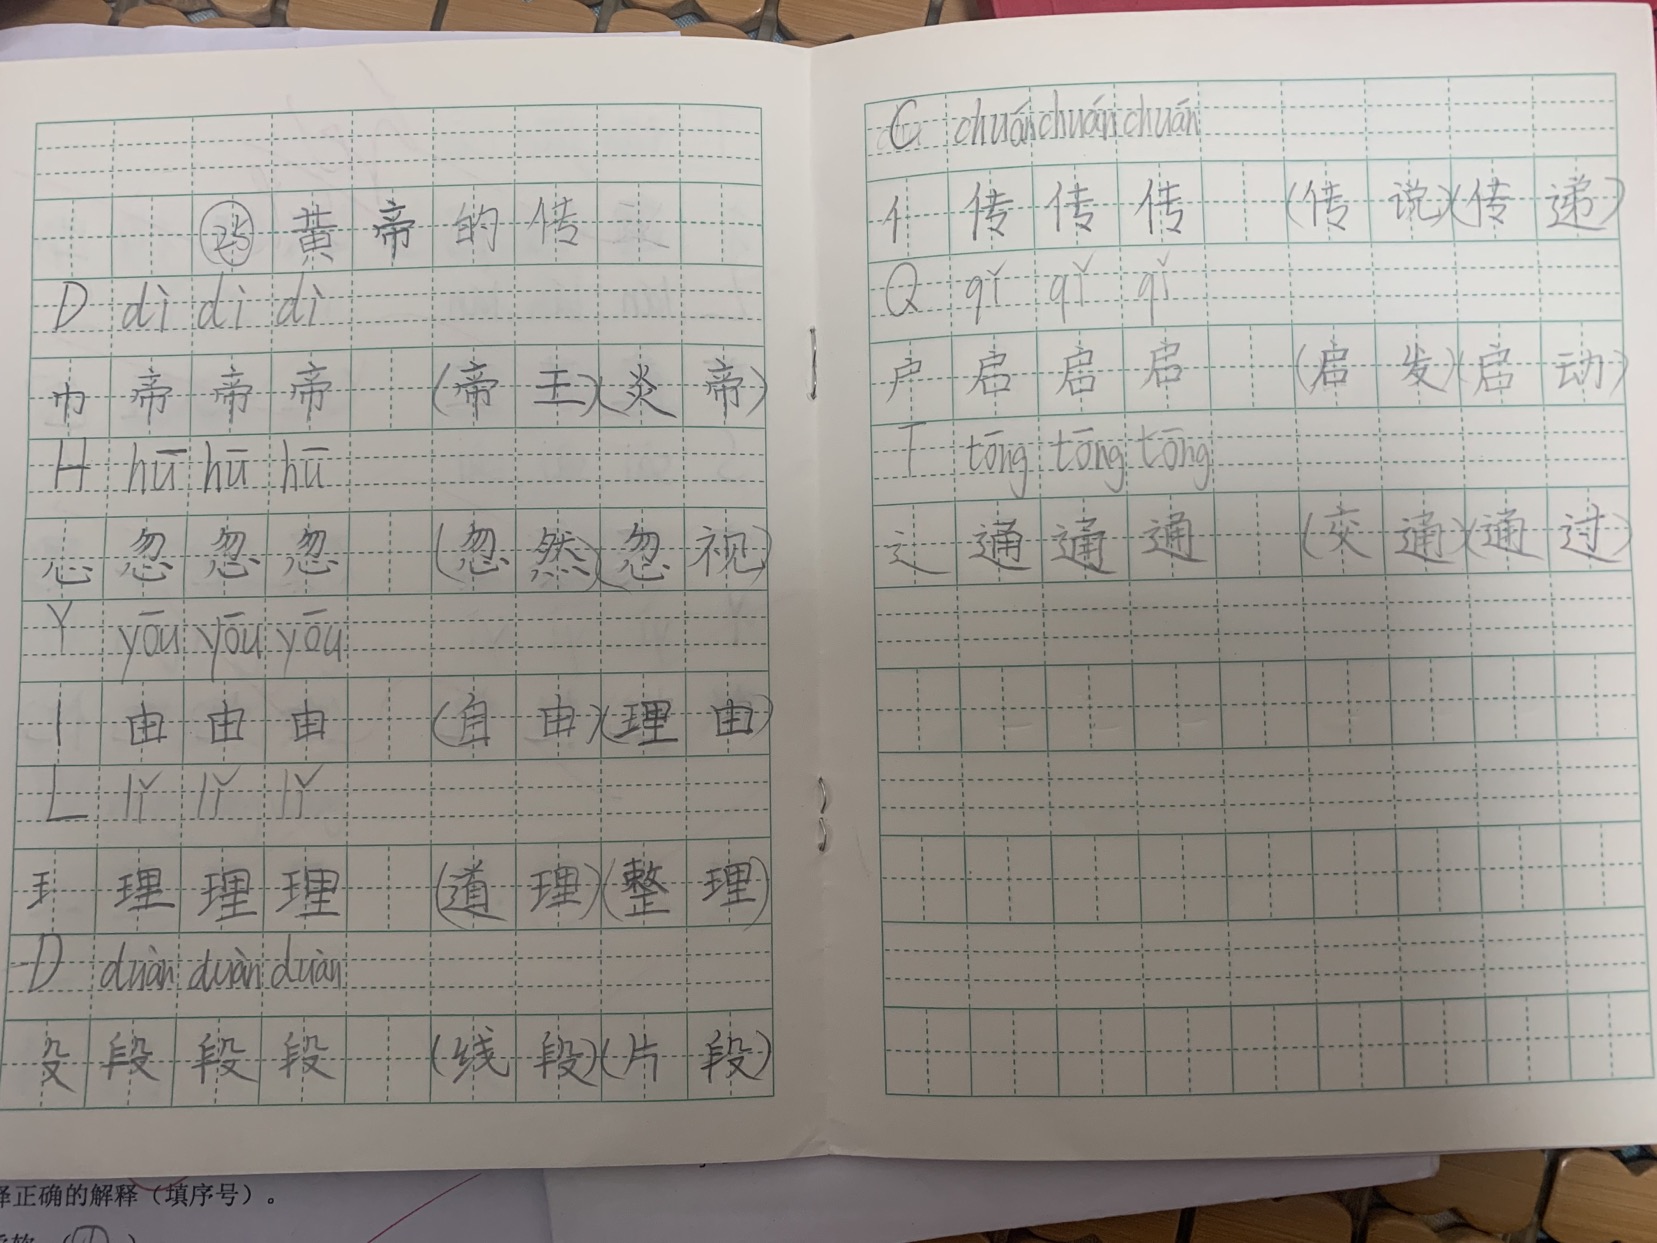 ㉕ 黄帝的传
D dì dì dì
巾 帝 帝 帝 (帝王)(炎帝)
H hū hū hū
心 忽 忽 忽 (忽然)(忽视)
Y yōu yōu yōu
丨 由 由 由 (自由)(理由)
L lǐ lǐ lǐ
王 理 理 理 (道理)(整理)
D duàn duàn duàn
殳 段 段 段 (线段)(片段)
C chuán chuán chuán
亻 传 传 传 (传说)(传递)
Q qǐ qǐ qǐ
户 启 启 启 (启发)(启动)
T tōng tōng tōng
辶 通 通 通 (交通)(通过)
择正确的解释(填序号)。